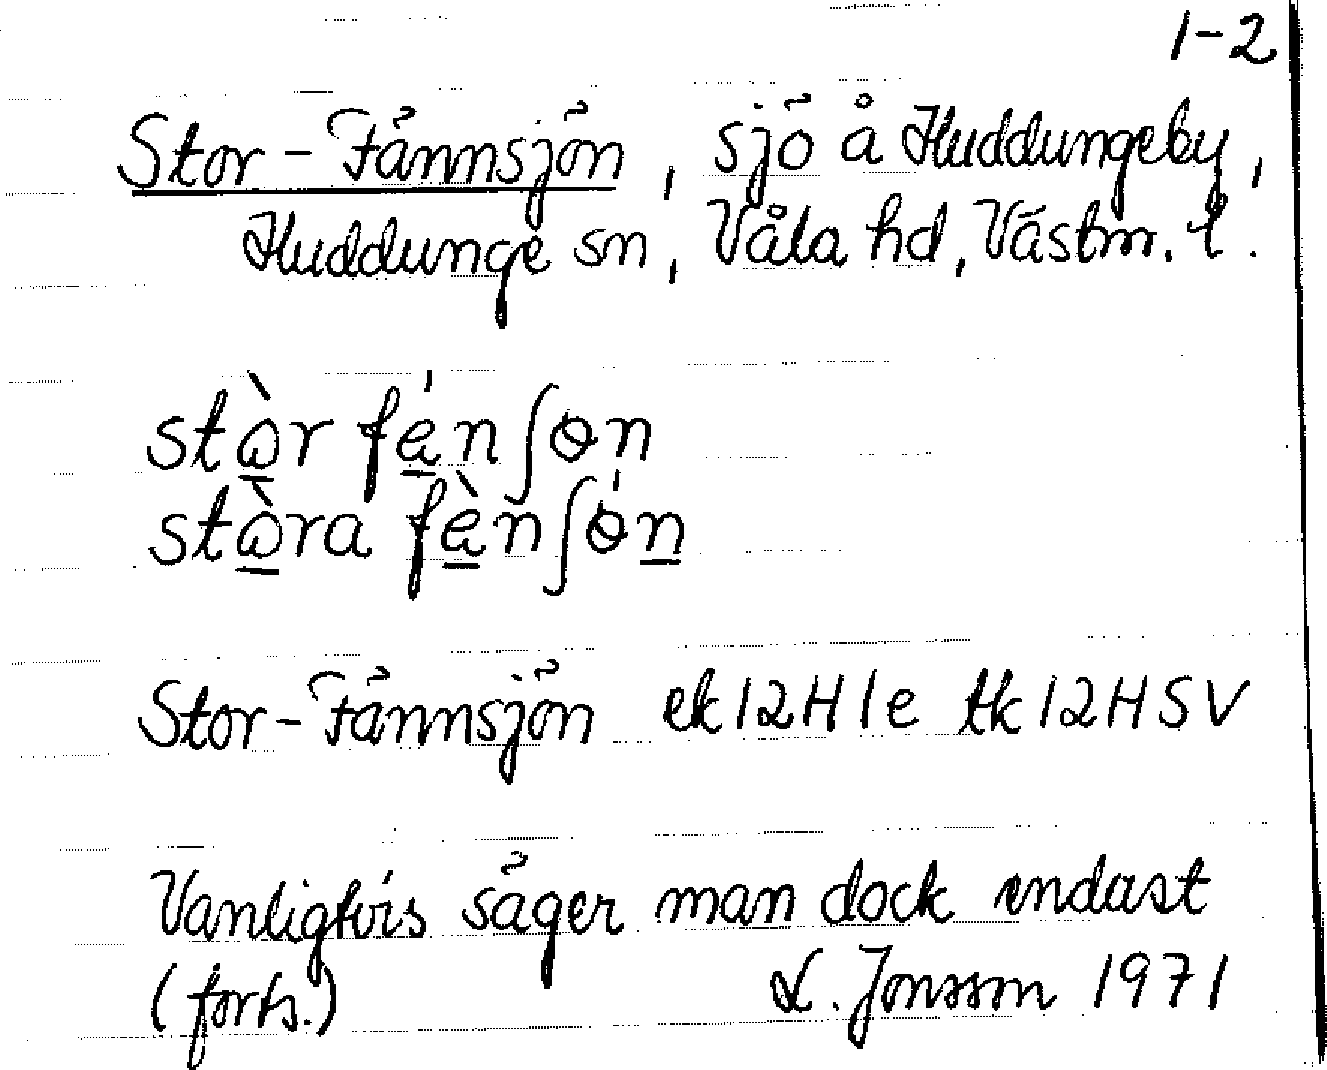 1-2
Stor-Fännsjön, sjö å Huddungeby,
Huddunge sn, Våla hd, Västm. l.
stὼr fén∫ɵn
stὼra fèn∫ɵ́n
Stor-Fännsjön ek 12H1e tk 12HSV
Vanligtvis säger man dock endast
(forts.) L. Jonsson 1971